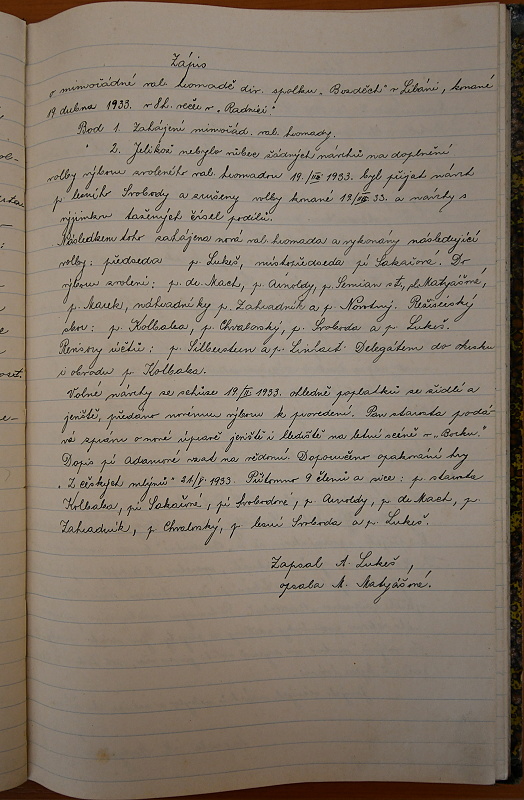 Zápis
o mimořádné val. hromadě div. spolku „Bozděch" v Libáni, konané
19 dubna 1933. v 8 h. večer v „Radnici".
Bod 1. Zahájení mimořád. val. hromady.
" 2. Jelikož nebylo vůbec žádných návrhů na doplnění
volby výboru zvoleného val. hromadou 19./III 1933. byl přijat návrh
p. lesního Svobody a zrušeny volby konané 19/III 33. a návrhy s
výjimkou tašených čísel podílu.
Následkem toho zahájena nová val. hromada a vykonány následující
volby: předseda p. Lukeš, místopředseda pí Sakařová. Do
výboru zvoleni: p. de Mach, p. Arnoldy, p. Semian st., sl. Matyášová,
p. Marek, náhradníky p. Zahradník a p. Novotný. Režisérský
sbor: p. Kolbaba, p. Chvalovský, p. Svoboda a p. Lukeš.
Revisory účtů: p. Silberstein a p. Linhart. Delegátem do okrsku
i obvodu p. Kolbaba.
Volné návrhy ze schůze 19/III 1933. ohledně poplatků ze židlí a
jeviště, předáno novému výboru k provedení. Pan starosta podá-
vá zprávu o nové úpravě jeviště i hlediště na letní scéně v „Borku."
Dopis pí Adamové vzat na vědomí. Doporučeno opakování hry
„Z českých mlýnů" 21./V. 1933. Přítomno 9 členů a sice: p. starosta
Kolbaba, pí Sakařová, pí Svobodová, p. Arnoldy, p. de Mach, p.
Zahradník, p. Chvalovský, p. lesní Svoboda a p. Lukeš.
Zapsal A. Lukeš,
opsala M. Matyášová.